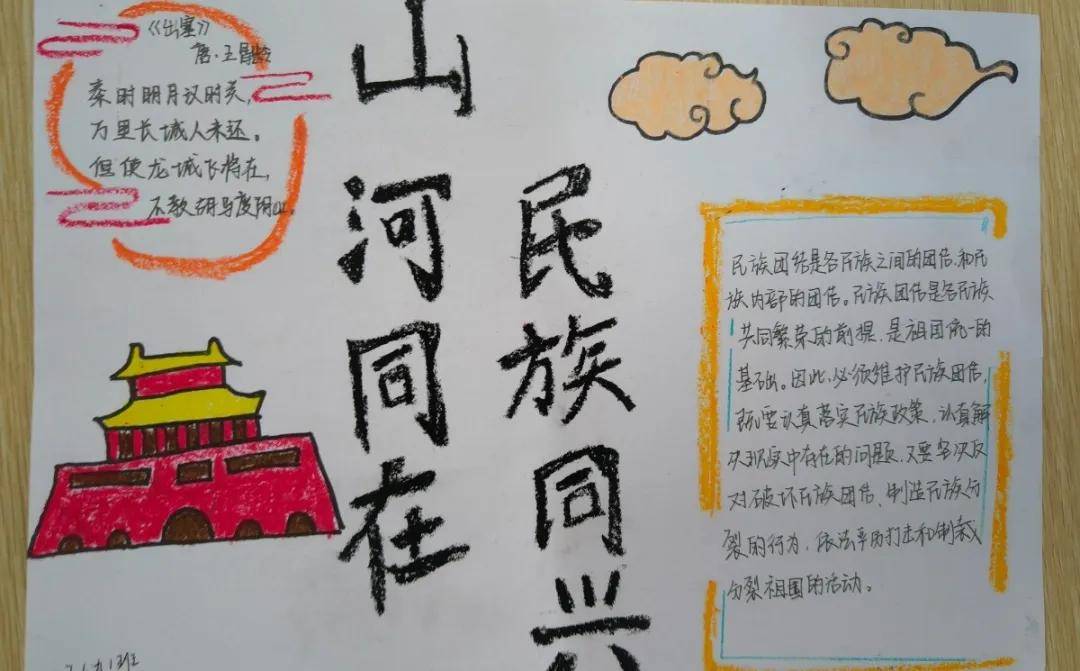 《出塞》
唐·王昌龄
秦时明月汉时关,
万里长城人未还。
但使龙城飞将在,
不教胡马度阴山。
山河同在
民族同兴
民族团结是各民族之间的团结和民
族内部的团结。民族团结是各民族
共同繁荣的前提,是祖国统一的
基础。因此,必须维护民族团结,
既要认真落实民族政策,认真解
决现实中存在的问题,又要坚决反
对破坏民族团结、制造民族分
裂的行为,依法严厉打击和制裁
分裂祖国的活动。